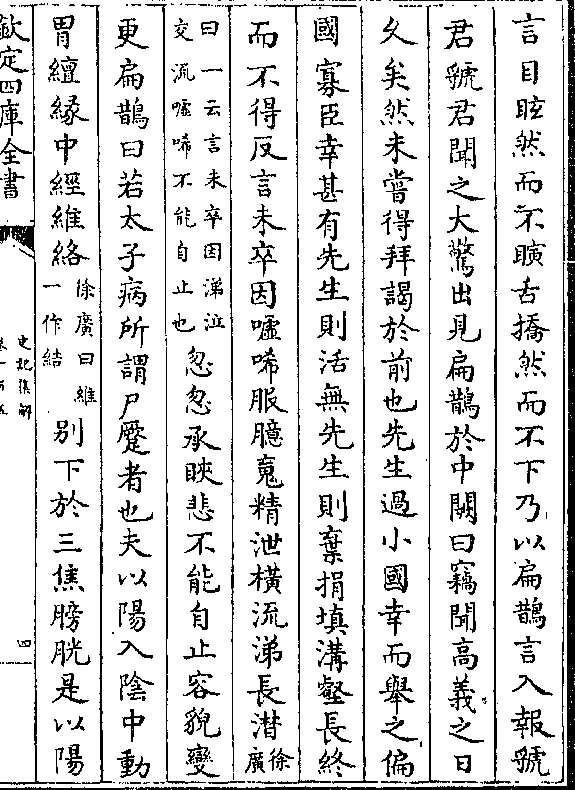 言目眩然而不瞚舌撟然而不下乃以扁鵲言入報虢
君虢君聞之大驚出見扁鵲於中闕曰竊聞高義之日
久矣然未嘗得拜謁於前也先生過小國幸而舉之偏
國寡臣幸甚有先生則活無先生則棄捐填溝壑長終
而不得反言未卒因噓唏服臆䰟精泄橫流涕長潸徐廣
曰一云言未卒因涕泣交流噓唏不能自止也忽忽承睫悲不能自止容貌變
更扁鵲曰若太子病所謂尸蹷者也夫以陽入陰中動
胃繵緣中經維絡徐廣曰維一作結別下於三焦膀胱是以陽
欽定四庫全書
史記集解
四